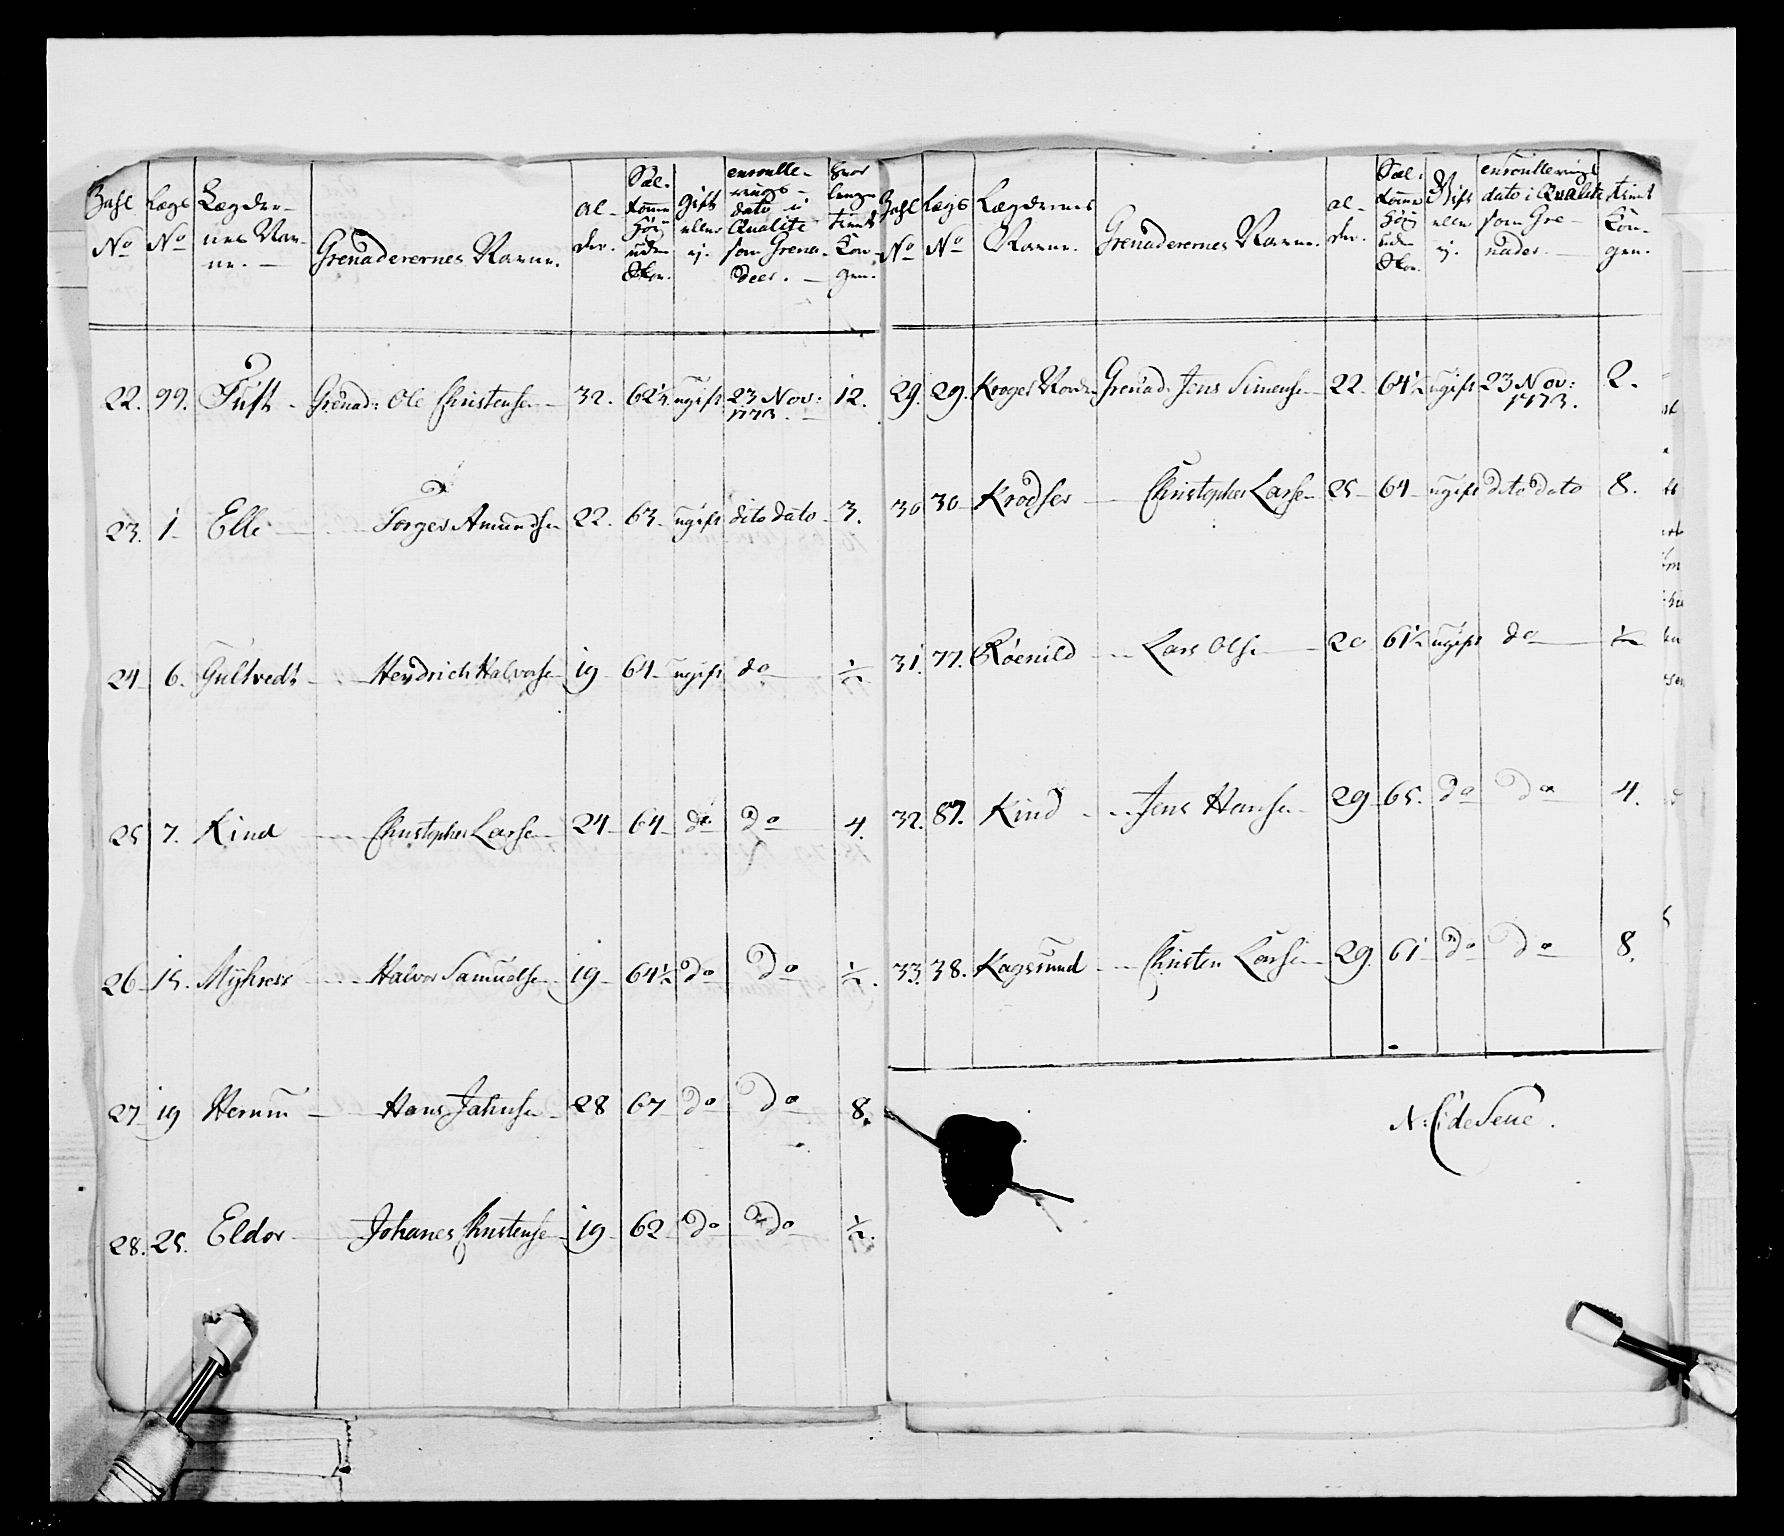 Zahl No | Lægs No | Lægder-nes Nav-ne. | Grenaderernes Navne. | al-der. | Sæl. Komme Höy uden Skoe. | gift eller ej. | enroulle-rings-dato i Qualite som Grena-deer. | hvor længe tient Kon-gen.
22. | 99. | Tuft | Grenad: Ole Christensen | 32. | 62½ | ugift | 23 Nov: 1773. | 12.
23. | 1 | Elle | Torger Amundsen | 22. | 63. | ugift | dito dato | 3.
24 | 6. | Gultvedt | Hendrich Halvorsen | 19 | 64 | ugift | do | ½
25 | 7. | Kind | Christopher Larsen | 24 | 64 | do | do | 4.
26 | 15. | Myhress | Halvor Samuelsen | 19 | 64½ | do | do | ½.
27 | 19 | Hernm | Hans Jahnsen | 28 | 67 | do | do | 8.
28. | 25. | Eldor | Johanes Christensen | 19 | 62 | do | do | ½.
Zahl No | Lægs No | Lægdernes Navne. | Grenaderernes Navne. | al-der. | Sæl. Komme Höy uden Skoe. | Gift eller ej. | enroullerings dato i Qualite som Gre-nader. | tient Kon-gen.
29. | 29. | Kroger Nordre | Grenad: Jens Simensen | 22. | 64½ | ugift | 23 Nov: 1773. | 2.
30 | 30 | Krodser | Christopher Larsen | 25 | 64 | ugift | dito dato | 8.
31. | 77. | Röenild | Lars Olsen | 20 | 61½ | ugift | do | ½
32. | 87. | Kind | Jens Hansen | 29 | 65. | do | do | 4.
33. | 38. | Kagsrund | Christen Larsen | 29. | 61 | do | do | 8.
N: C: de Seue.